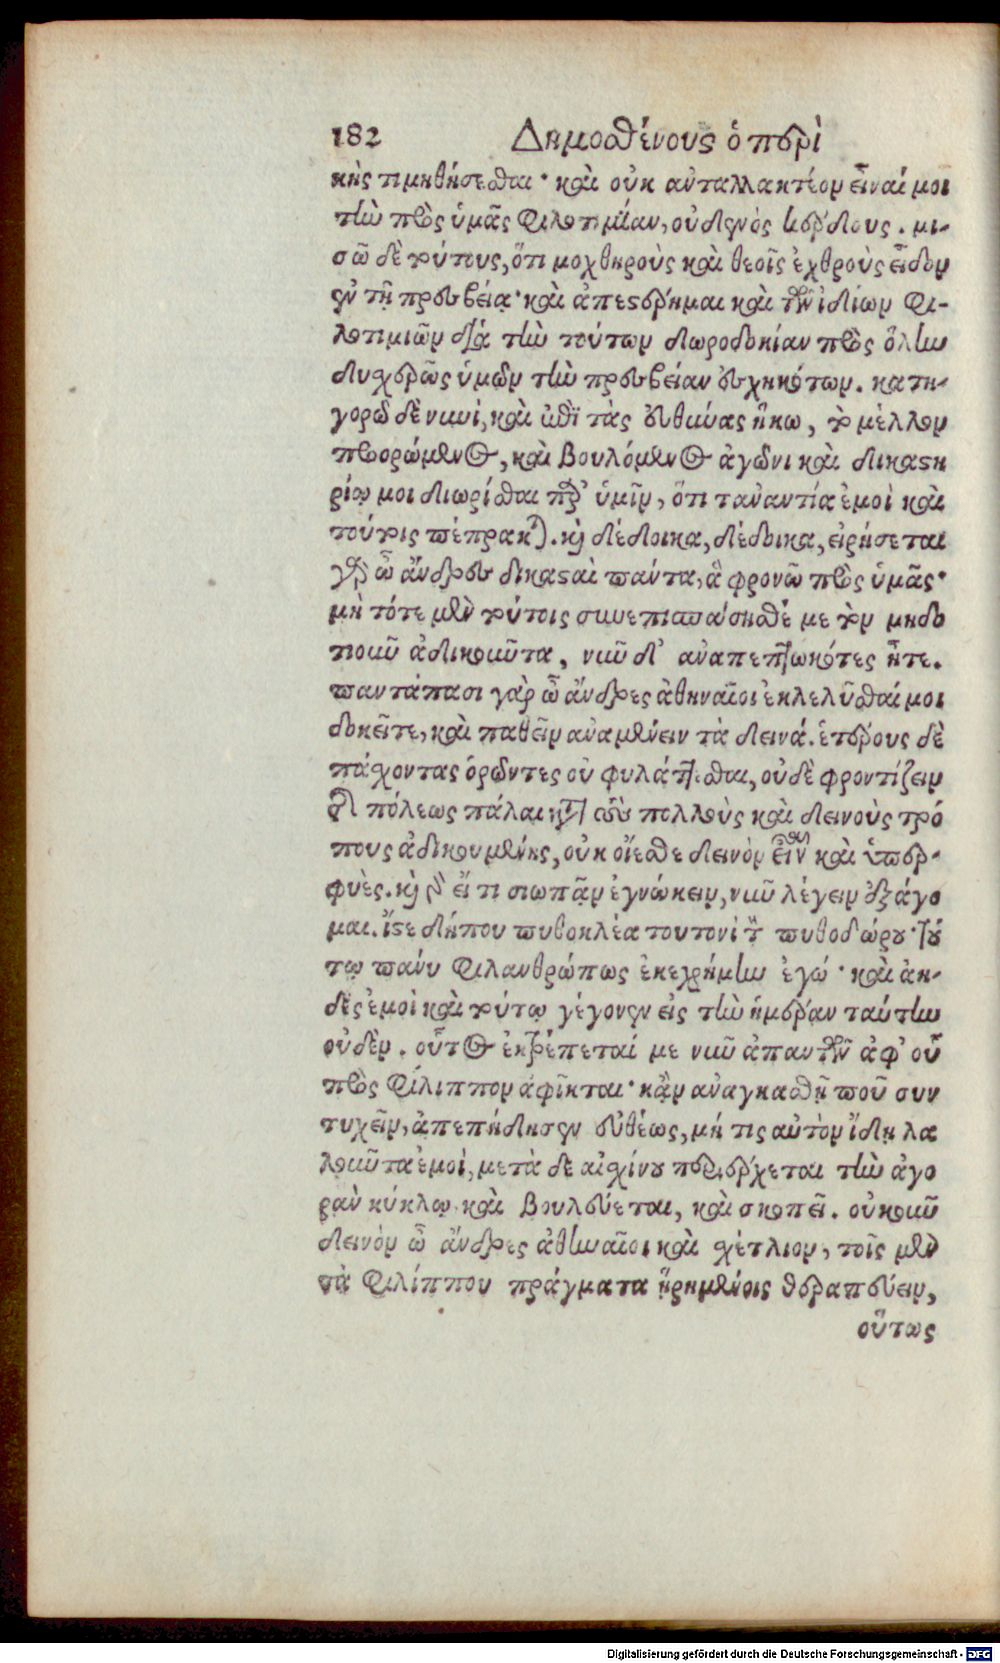 182 Δημοσθένους ὁ περὶ
κῆς τιμηθήσεσθαι· καὶ οὐκ ἀνταλλακτέον εἶναί μοι
τὴν πρὸς ὑμᾶς φιλοτιμίαν, οὐδενὸς κέρδους. μι-
σῶ δὲ τούτους, ὅτι μοχθηροὺς καὶ θεοῖς ἐχθροὺς εἶδον
ἐν τῇ πρεσβείᾳ· καὶ ἀπεστέρημαι καὶ τῶν ἰδίων φι-
λοτιμιῶν διὰ τὴν τούτων δωροδοκίαν πρὸς ὅλην
δυσχερῶς ὑμῶν τὴν πρεσβείαν ἐσχηκότων. κατη-
γορῶ δὲ νυνὶ, καὶ ἐπὶ τὰς εὐθύνας ἥκω, τὸ μέλλον
προορώμενος, καὶ βουλόμενος ἀγῶνι καὶ δικαστη
ρίῳ μοι διωρίσθαι παρ' ὑμῖν, ὅτι τἀναντία ἐμοὶ καὶ
τούτοις πέπρακται. καὶ δέδοικα, δέδοικα, εἰρήσεται
γὰρ ὦ ἄνδρες δικασταὶ πάντα, ἃ φρονῶ πρὸς ὑμᾶς·
μὴ τότε μὲν τούτοις συνεπισπάσησθέ με τὸν μηδο
τιοῦν ἀδικοῦντα, νῦν δ' ἀναπεπτωκότες ἦτε.
παντάπασι γὰρ ὦ ἄνδρες ἀθηναῖοι ἐκλελῦσθαί μοι
δοκεῖτε, καὶ παθεῖν ἀναμένειν τὰ δεινά. ἑτέρους δὲ
πάσχοντας ὁρῶντες οὐ φυλάττεσθαι, οὐδὲ φροντίζειν
τῆς πόλεως πάλαι κατὰ πολλοὺς καὶ δεινοὺς τρό
πους ἀδικουμένης, οὐκ οἴεσθε δεινὸν εἶναι καὶ ὑπερ-
φυές. καὶ γὰρ εἴ τι σιωπᾷν ἐγνώκειν, νῦν λέγειν ἐξάγο
μαι. ἴστε δήπου πυθοκλέα τουτονὶ τὸν πυθοδώρου· τού
τῳ πάνυ φιλανθρώπως ἐκεχρήμην ἐγώ· καὶ ἀη-
δὲς ἐμοὶ καὶ τούτῳ γέγονεν εἰς τὴν ἡμέραν ταύτην
οὐδέν. οὗτος ἐκτρέπεταί με νῦν ἀπαντῶν ἀφ' οὗ
πρὸς φίλιππον ἀφῖκται· κἂν ἀναγκασθῇ ποῦ συν
τυχεῖν, ἀπεπήδησεν εὐθέως, μή τις αὐτὸν ἴδῃ λα
λοῦντα ἐμοὶ, μετὰ δὲ αἰσχίνου περιέρχεται τὴν ἀγο
ρὰν κύκλῳ καὶ βουλεύεται, καὶ σκοπεῖ. οὐκοῦν
δεινὸν ὦ ἄνδρες ἀθηναῖοι καὶ σχέτλιον, τοῖς μὲν
τὰ φιλίππου πράγματα ᾑρημένοις θεραπεύειν,
οὕτως
Digitalisierung gefördert durch die Deutsche Forschungsgemeinschaft - DFG